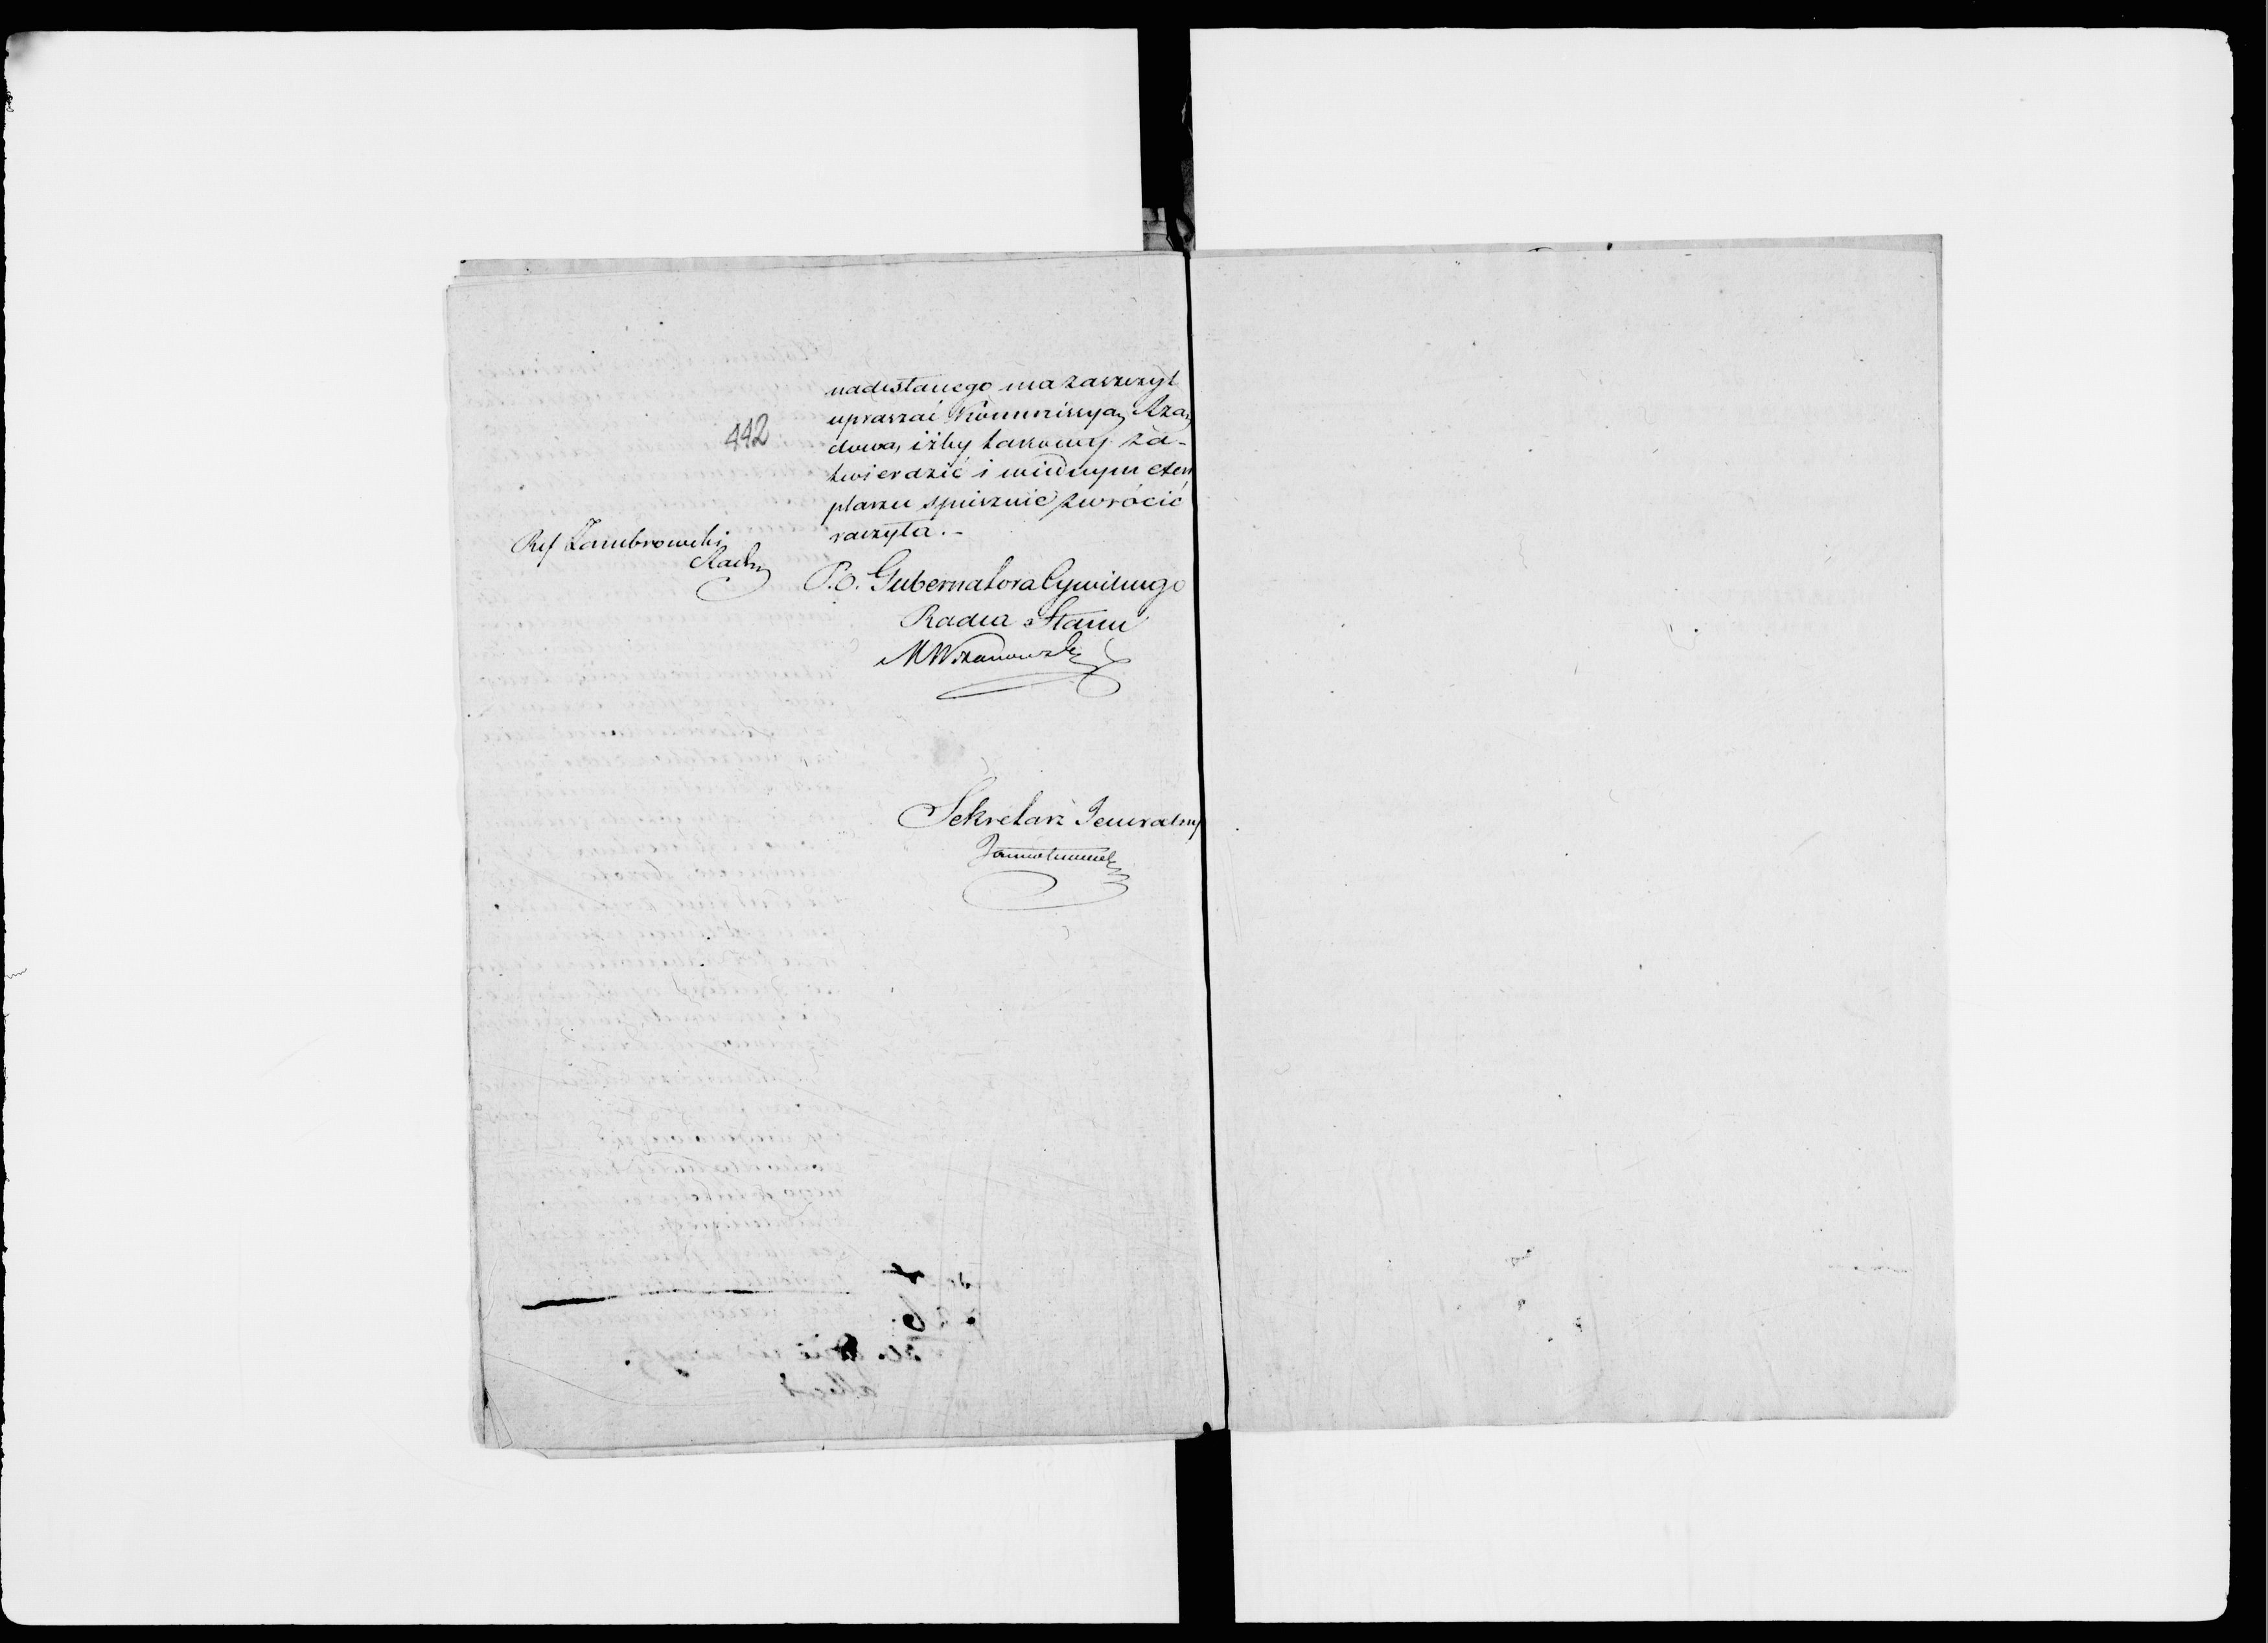 442
nadesłanego ma zaszczyt
upraszać Kommissyą Rzą
dową, iżby takowy za-
twierdzić i w iednym exem
plarzu spiesznie zwrócić
raczyła.-
Ref Zambrowski
P.O. Gubernatora Cywilnego
Radca Stanu
Sekretarz Jeneralny